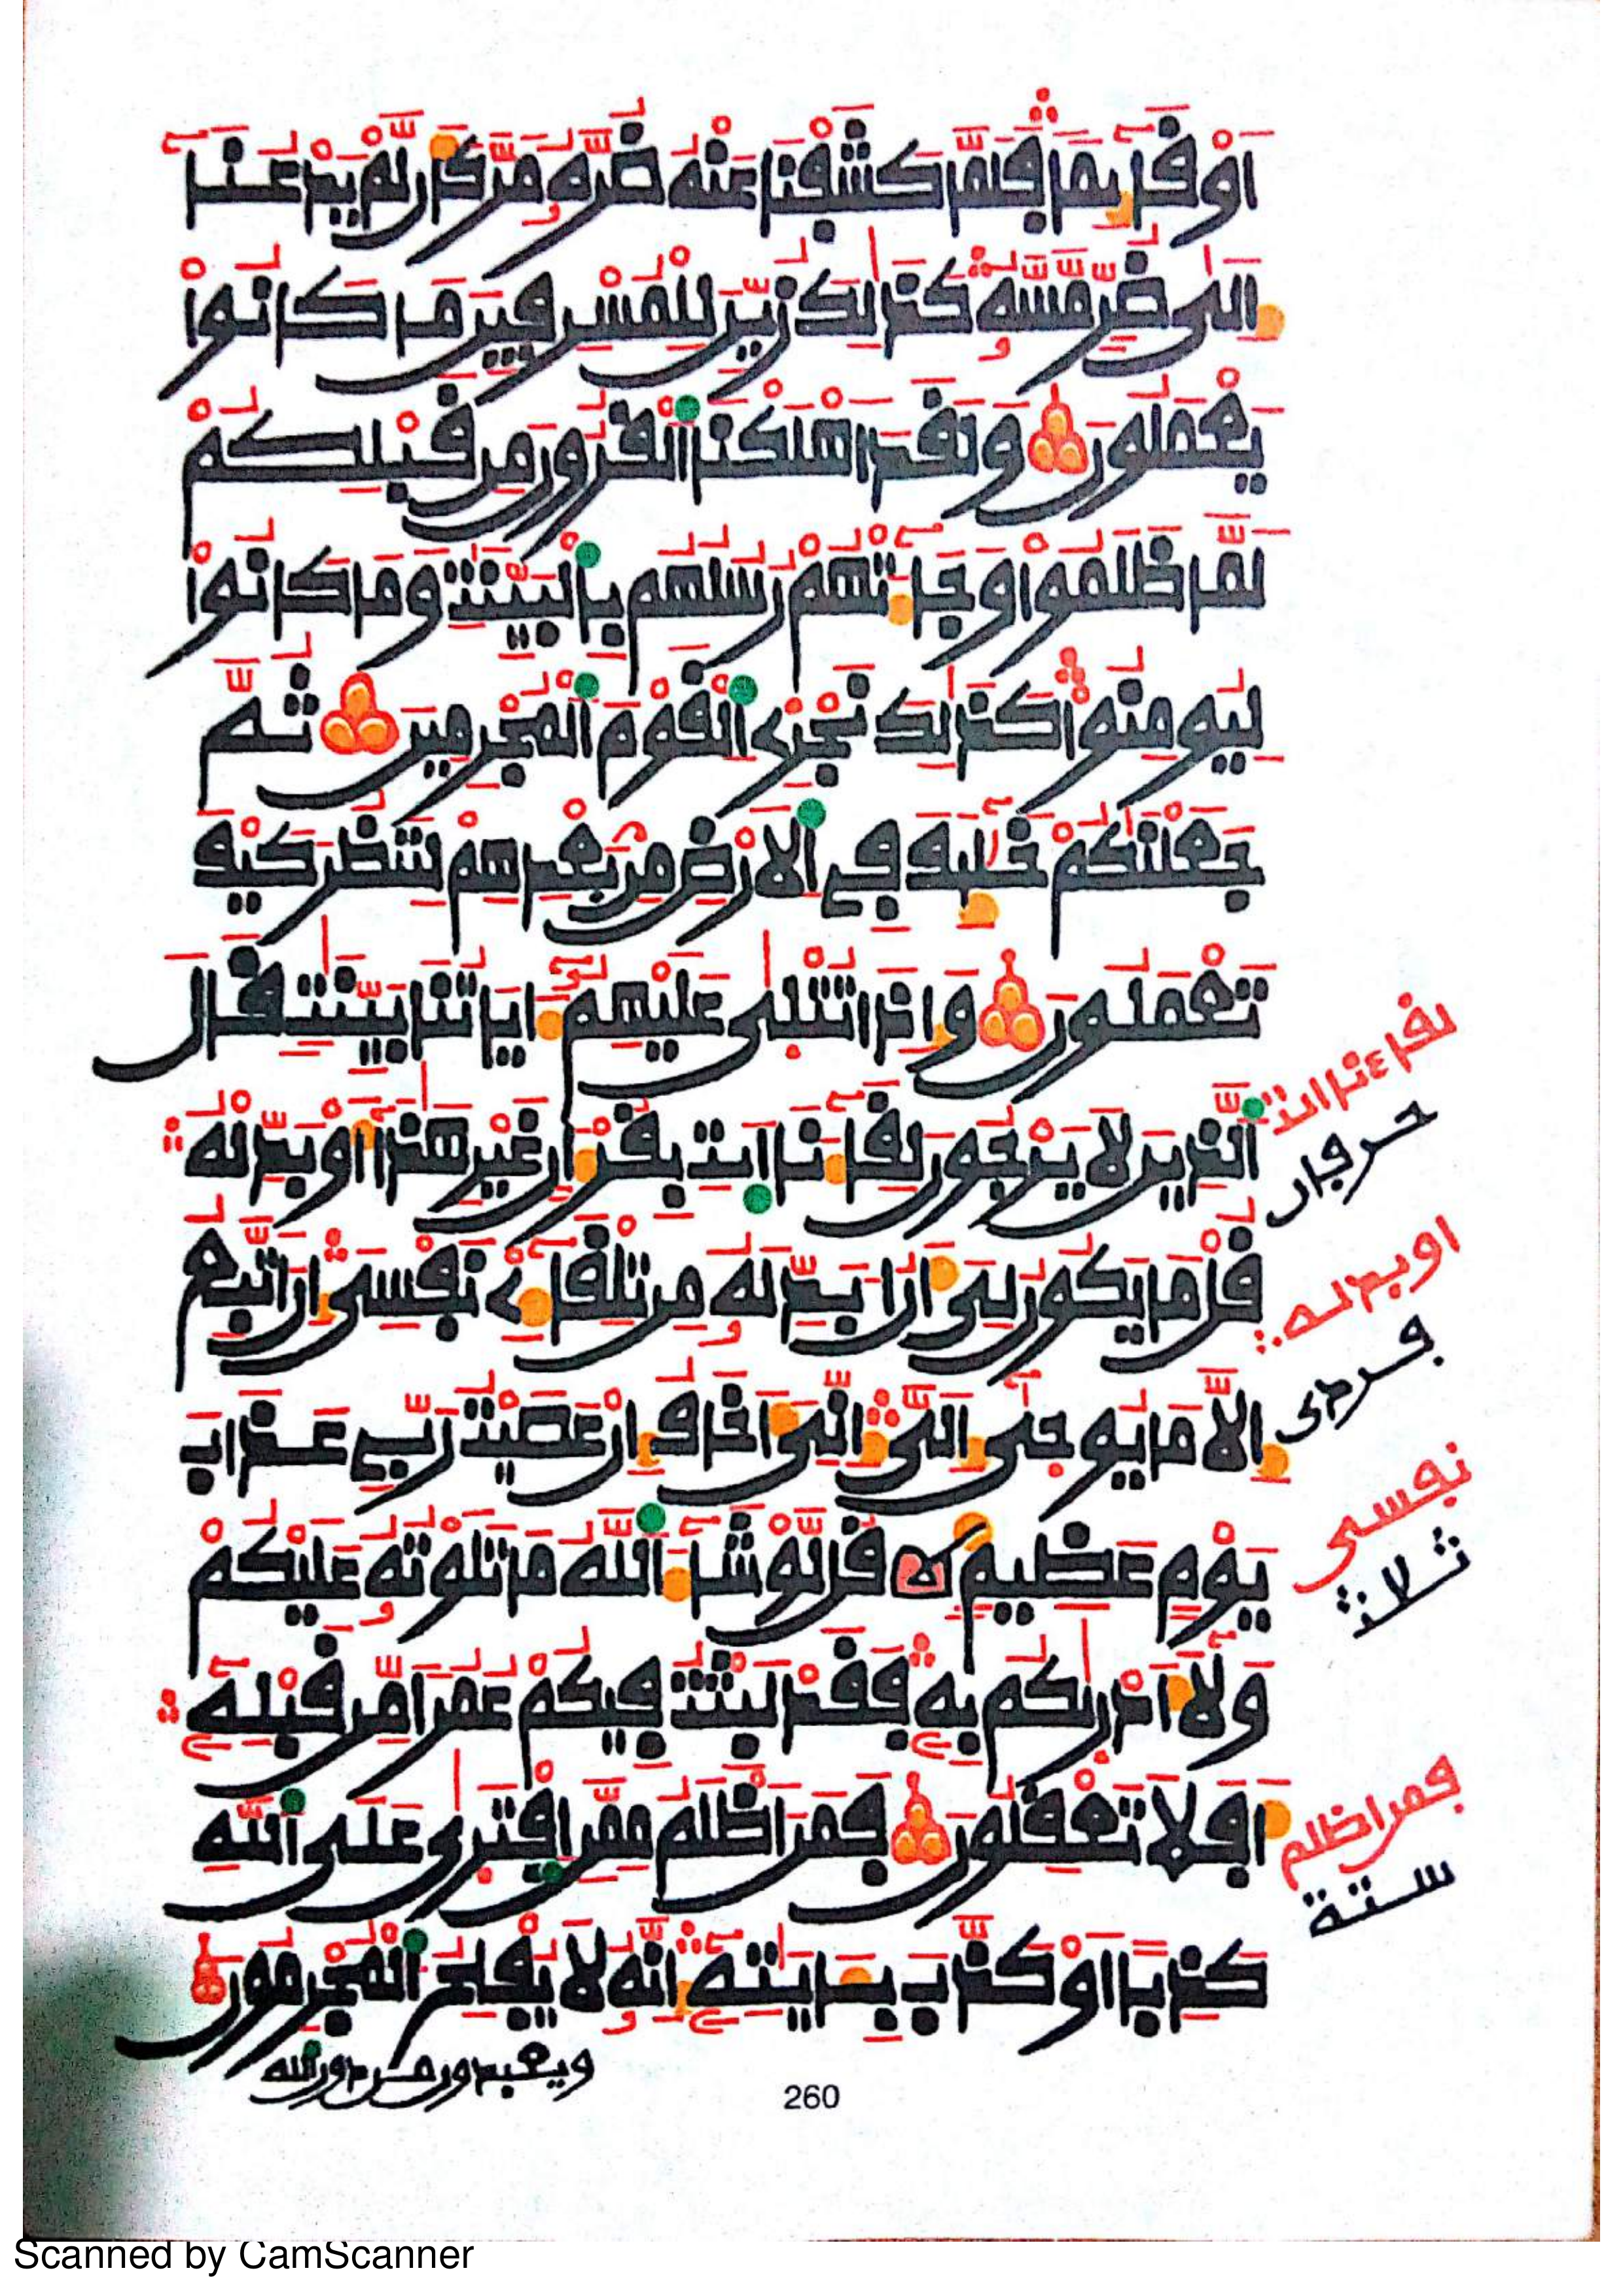 أَوْ قَآئِمًا فَلَمَّا كَشَفْنَا عَنْهُ ضُرَّهُۥ مَرَّ كَأَن لَّمْ يَدْعُنَآ
إِلَىٰ ضُرٍّ مَّسَّهُۥ كَذَٰلِكَ زُيِّنَ لِلْمُسْرِفِينَ مَا كَانُوا۟
يَعْمَلُونَ وَلَقَدْ أَهْلَكْنَا ٱلْقُرُونَ مِن قَبْلِكُمْ
لَمَّا ظَلَمُوا۟ وَجَآءَتْهُمْ رُسُلُهُم بِٱلْبَيِّنَٰتِ وَمَا كَانُوا۟
لِيُومِنُوا۟ كَذَٰلِكَ نَجْزِى ٱلْقَوْمَ ٱلْمُجْرِمِينَ ثُمَّ
جَعَلْنَٰكُمْ خَلَٰٓئِفَ فِى ٱلْأَرْضِ مِنۢ بَعْدِهِمْ لِنَنظُرَ كَيْفَ
تَعْمَلُونَ وَإِذَا تُتْلَىٰ عَلَيْهِمُۥٓ ءَايَاتُنَا بَيِّنَٰتٍ قَالَ
ٱلَّذِينَ لَا يَرْجُونَ لِقَآءَنَا ٱئْتِ بِقُرْءَانٍ غَيْرِ هَٰذَآ أَوْ بَدِّلْهُ
قُلْ مَا يَكُونُ لِىَ أَنْ أُبَدِّلَهُۥ مِن تِلْقَآءِى۟ نَفْسِىَ إِنْ أَتَّبِعُ
إِلَّا مَا يُوحَىٰٓ إِلَىَّ إِنِّىَ أَخَافُ إِنْ عَصَيْتُ رَبِّى عَذَابَ
يَوْمٍ عَظِيمٍ قُل لَّوْ شَآءَ ٱللَّهُ مَا تَلَوْتُهُۥ عَلَيْكُمْ
وَلَآ أَدْرَىٰكُم بِهِۦ فَقَدْ لَبِثْتُ فِيكُمْ عُمُرًا مِّن قَبْلِهِۦٓ
أَفَلَا تَعْقِلُونَ فَمَنْ أَظْلَمُ مِمَّنِ ٱفْتَرَىٰ عَلَى ٱللَّهِ
كَذِبًا أَوْ كَذَّبَ بِـَٔايَٰتِهِۦٓ إِنَّهُۥ لَا يُفْلِحُ ٱلْمُجْرِمُونَ
ويعبدون من دون الله
لقاءنا ائت
حرفان
او بدله
فردى
نفسى
ثلاث
فمن اظلم
ستة
260
Scanned by CamScanner